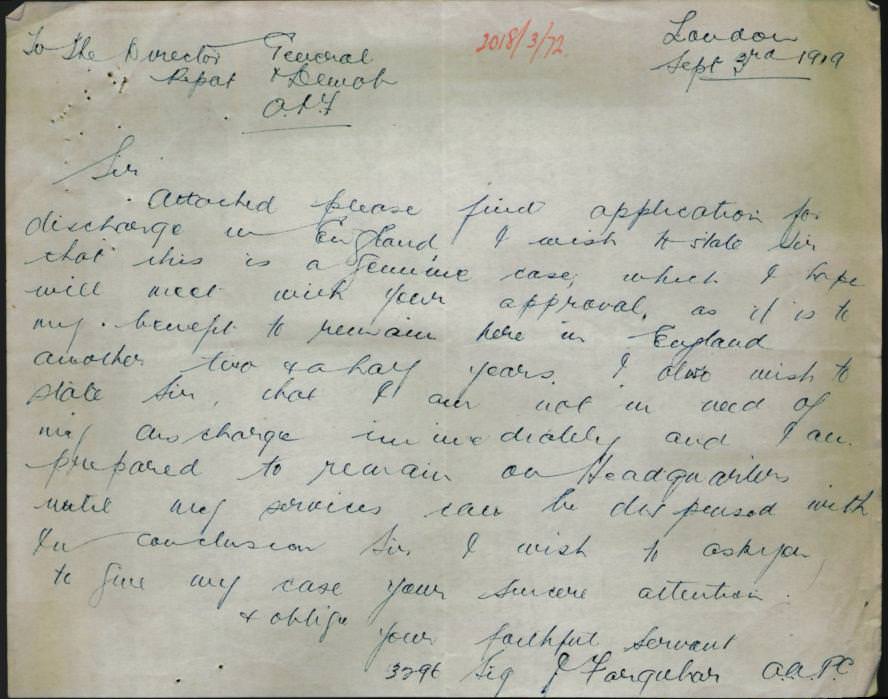 To The Director General
Repat & Demob
A.I.F
2018/3/72.
London
Sept 3rd 1919
Sir
Attached please find application for
discharge in England, I wish to state Sir
that this is a genuine case, which I hope
will meet with your approval, as it is to
my benefit to remain here in England
another two & a half years. I also wish to
state Sir, that I am not in need of
my discharge immediately and I am
prepared to remain on Headquarters
until my services can be dispensed with
In conclusion Sir I wish to ask you
to give my case your sincere attention.
& oblige
Your faithful servant
3296 Sig J Farquhar A.A.P.C